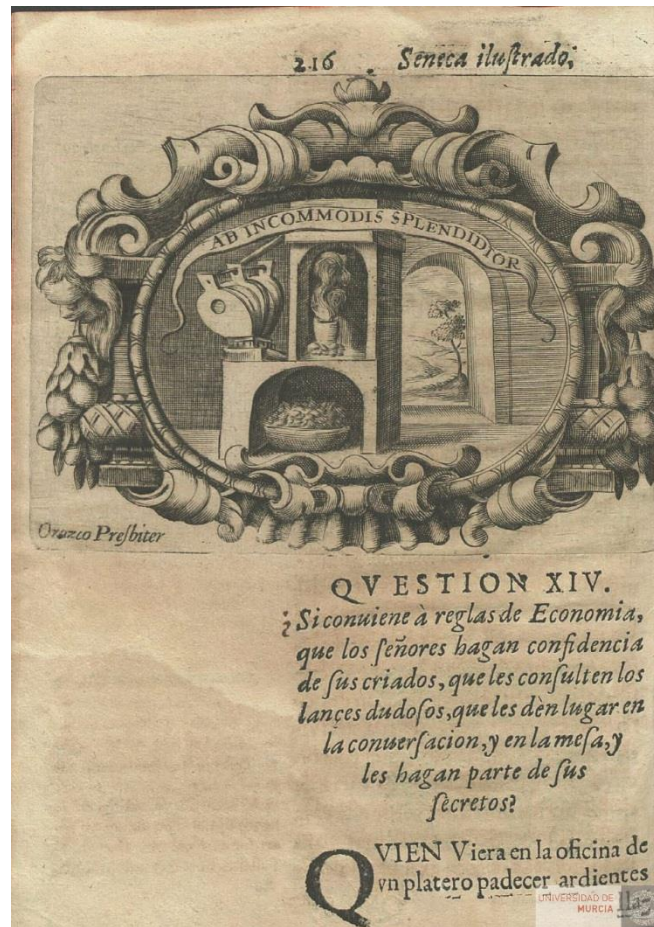 216 Seneca iluſtrado;
AB INCOMMODIS SPLENDIDIOR
Orozco Preſbiter
QVESTION XIV.
¿Si conuiene à reglas de Economia,
que los ſeñores hagan confidencia
de ſus criados, que les conſulten los
lançes dudoſos, que les dèn lugar en
la conuerſacion, y en la meſa, y
les hagan parte de ſus
ſècretos?
QVIEN Viera en la oficina de
vn platero padecer ardientes
lla-
UNIVERSIDAD DE
MURCIA